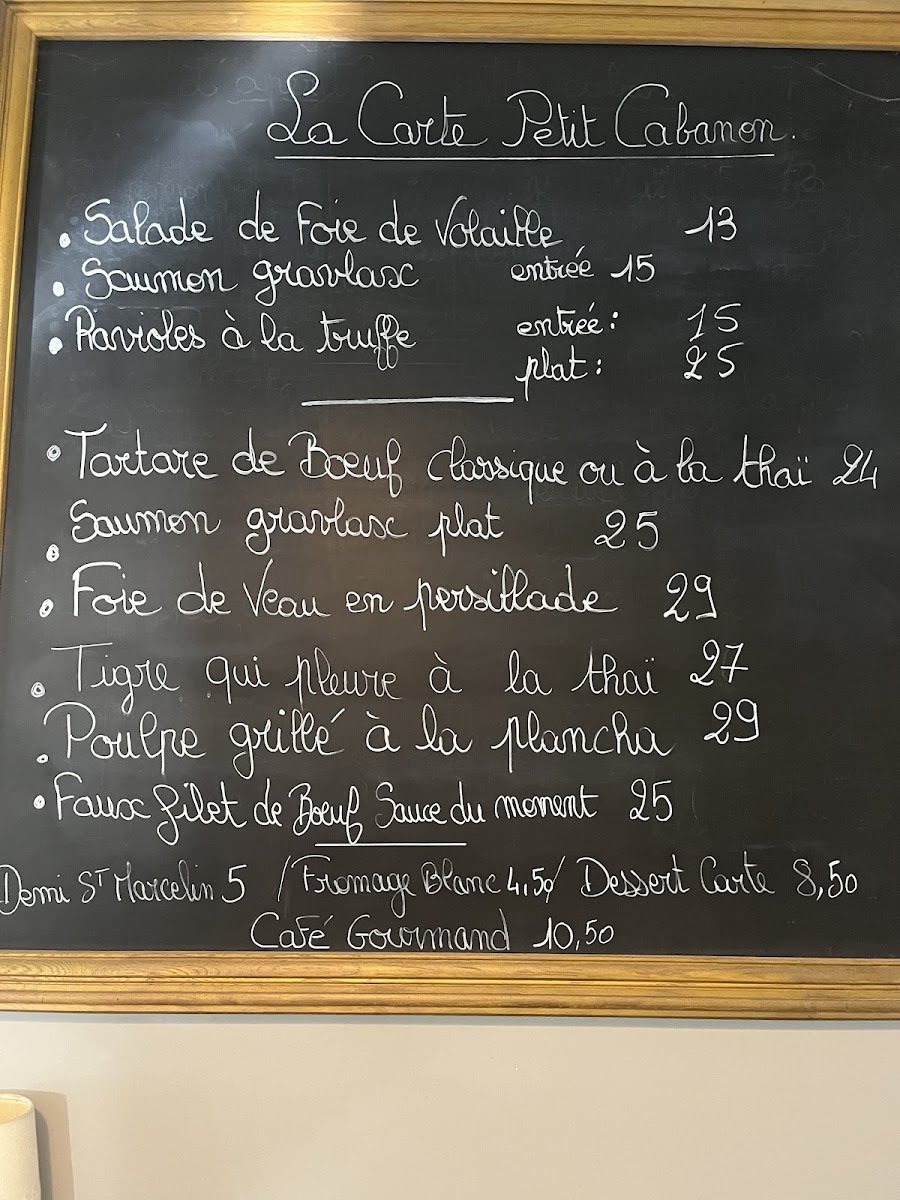 La Carte Petit Cabanon.
• Salade de Foie de Volaille 13
• Saumon gravlax entrée 15
• Ravioles à la truffe entrée : 15
plat : 25
• Tartare de Bœuf classique ou à la thaï 24
• Saumon gravlax plat 25
• Foie de Veau en persillade 29
• Tigre qui pleure à la thaï 27
• Poulpe grillé à la plancha 29
• Faux filet de Bœuf Sauce du moment 25
Demi St Marcelin 5 / Fromage Blanc 4,50/ Dessert Carte 8,50
Café Gourmand 10,50